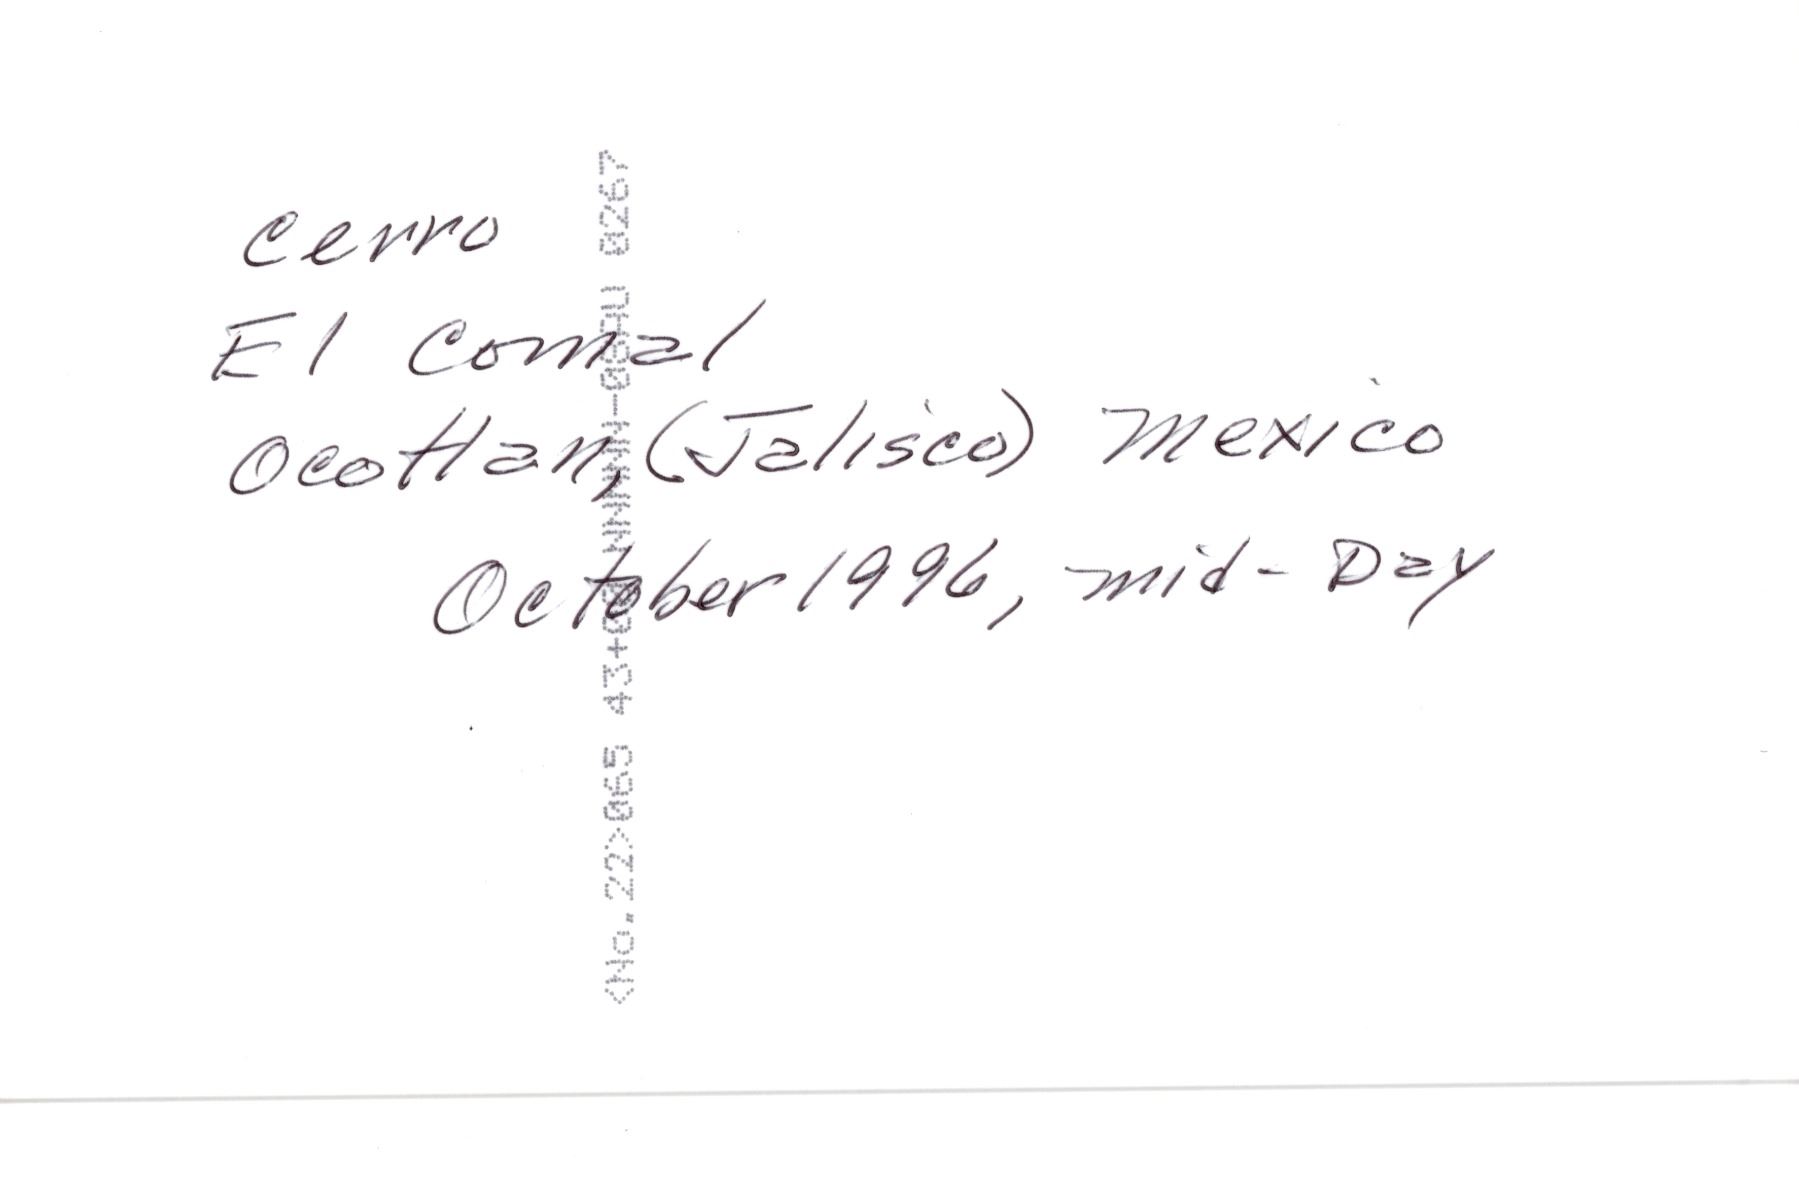 Cerro
El Comal
Ocotlan, (Jalisco) Mexico
October 1996, mid-Day
<No.22>065 43+00 NNNNN-06AU 0267